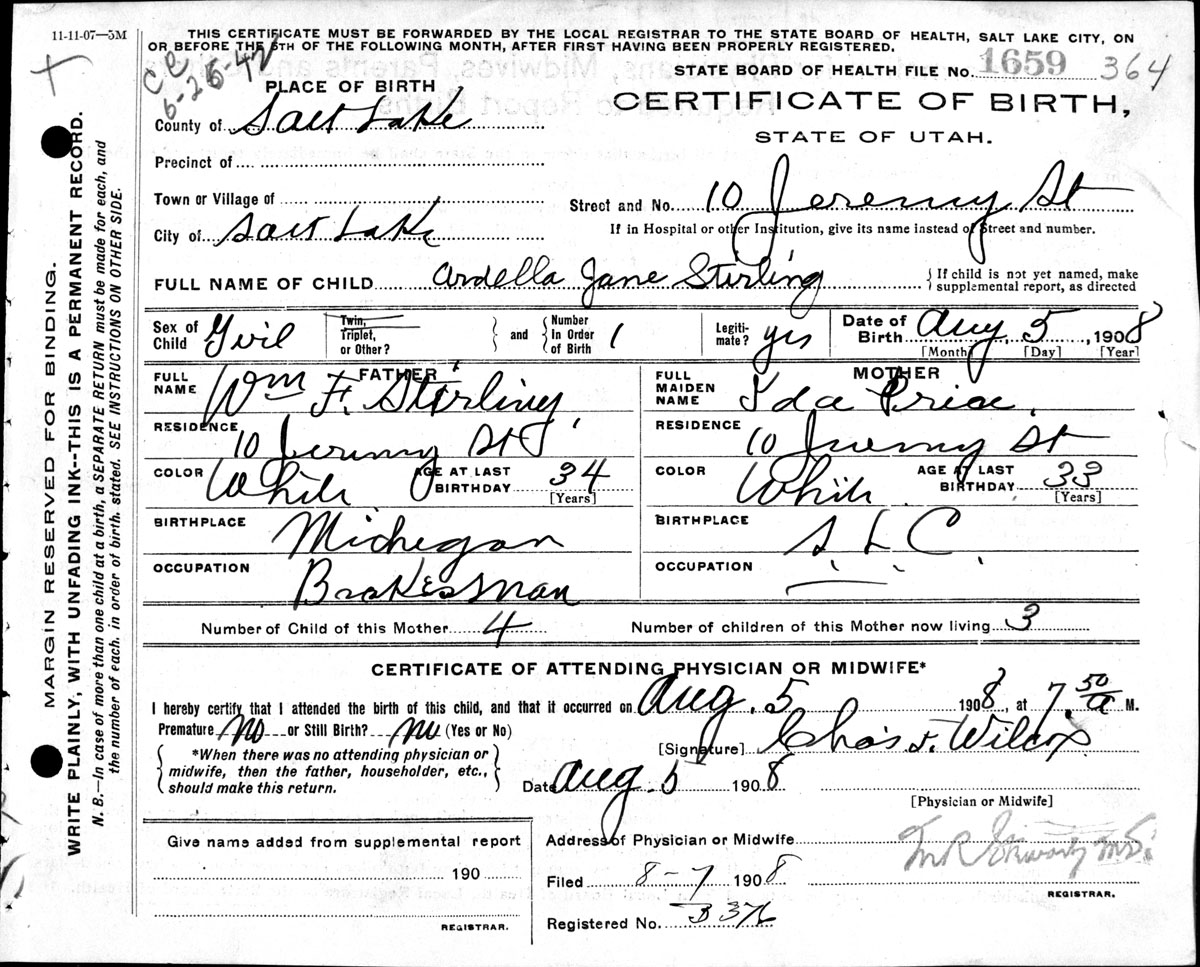 11-11-07—5M
THIS CERTIFICATE MUST BE FORWARDED BY THE LOCAL REGISTRAR TO THE STATE BOARD OF HEALTH, SALT LAKE CITY, ON
OR BEFORE THE 5TH OF THE FOLLOWING MONTH, AFTER FIRST HAVING BEEN PROPERLY REGISTERED.
C C
6-25-42
STATE BOARD OF HEALTH FILE No. 1659 364
PLACE OF BIRTH
CERTIFICATE OF BIRTH,
STATE OF UTAH.
County of Salt Lake
Precinct of
Town or Village of
Street and No. 10 Jeremy St
City of Salt Lake
If in Hospital or other Institution, give its name instead of Street and number.
FULL NAME OF CHILD Ardella Jane Stirling
{ If child is not yet named, make
supplemental report, as directed
Sex of Child Girl
Twin, Triplet, or Other? } and { Number In Order of Birth 1
Legitimate? yes
Date of Birth Aug 5, 1908
[Month] [Day] [Year]
FATHER
FULL NAME Wm F. Stirling
RESIDENCE 10 Jeremy St
COLOR White AGE AT LAST BIRTHDAY 34
[Years]
BIRTHPLACE Michegan
OCCUPATION Brakesman
MOTHER
FULL MAIDEN NAME Ida Price
RESIDENCE 10 Jeremy St
COLOR White AGE AT LAST BIRTHDAY 33
[Years]
BIRTHPLACE S. L. C.
OCCUPATION
Number of Child of this Mother 4 Number of children of this Mother now living 3
CERTIFICATE OF ATTENDING PHYSICIAN OR MIDWIFE*
I hereby certify that I attended the birth of this child, and that it occurred on Aug. 5 1908, at 7.50 a M.
Premature No or Still Birth? No (Yes or No)
{ *When there was no attending physician or
midwife, then the father, householder, etc.,
should make this return. }
[Signature] Chas. F. Wilcox
Date Aug. 5 1908
[Physician or Midwife]
Give name added from supplemental report
190
REGISTRAR.
Address of Physician or Midwife
Filed 8-7 1908
REGISTRAR.
Registered No. B 376
MARGIN RESERVED FOR BINDING.
WRITE PLAINLY, WITH UNFADING INK--THIS IS A PERMANENT RECORD.
N. B.—In case of more than one child at a birth, a SEPARATE RETURN must be made for each, and
the number of each, in order of birth, stated. SEE INSTRUCTIONS ON OTHER SIDE.